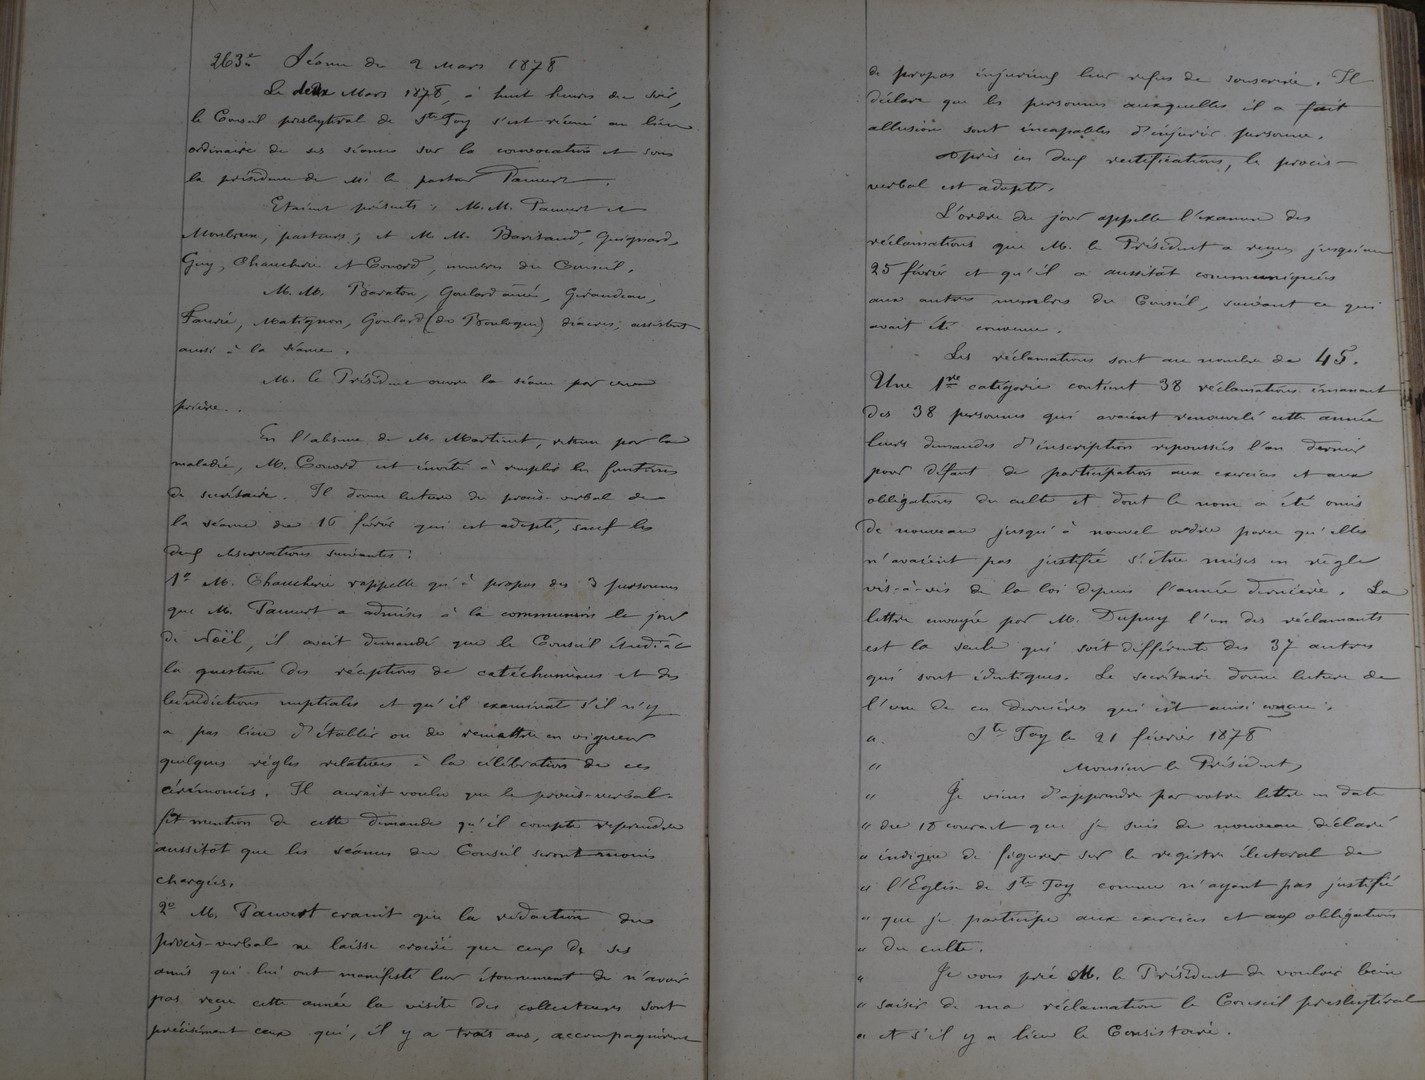 263e Séance du 2 Mars 1878
Le deux Mars 1878, à huit heures du soir,
le Conseil presbytéral de Ste Foy s'est réuni au lieu
ordinaire de ses séances sur la convocation et sous
la présidence de Mr le pasteur Pauvert.
Etaient présents : M.M. Pauvert et
Moulinun, pasteurs ; et M. M. Baritaud, Guignard,
Guy, Chaucherie et Couord, membres du Conseil.
M. M. Baraton, Goulard aîné, Giraudeau,
Faurie, Matignon, Goulard (de Boulogne) diacres, assistent
aussi à la séance.
M. le Président ouvre la séance par une
prière.
En l'absence de M. Martinet, retenu par la
maladie, M. Couord est invité à remplir les fonctions
de secrétaire. Il donne lecture du procès-verbal de
la séance du 16 février qui est adopté, sauf les
deux observations suivantes :
1o M. Chaucherie rappelle qu'à propos des 3 personnes
que M. Pauvert a admises à la communion le jour
de Noël, il avait demandé que le Conseil étudiât
la question des réceptions de catéchumènes et des
bénédictions nuptiales et qu'il examinât s'il n'y
a pas lieu d'établir ou de remettre en vigueur
quelques règles relatives à la célébration de ces
cérémonies. Il aurait voulu que le procès-verbal
fît mention de cette demande qu'il compte reprendre
aussitôt que les séances du Conseil seront moins
chargées.
2o M. Pauvert craint que la rédaction du
procès-verbal ne laisse croire que ceux de ses
amis qui lui ont manifesté leur étonnement de n'avoir
pas reçu cette année la visite des collecteurs sont
précisément ceux qui, il y a trois ans, accompagnèrent
de propos injurieux leur refus de souscrire. Il
déclare que les personnes auxquelles il a fait
allusion sont incapables d'injurier personne.
Après ces deux rectifications, le procès-
verbal est adopté.
L'ordre du jour appelle l'examen des
réclamations que M. le Président a reçues jusqu'au
25 février et qu'il a aussitôt communiquées
aux autres membres du Conseil, suivant ce qui
avait été convenu.
Les réclamations sont au nombre de 45.
Une 1re catégorie contient 38 réclamations émanant
des 38 personnes qui avaient renouvelé cette année
leurs demandes d'inscription repoussées l'an dernier
pour défaut de participation aux exercices et aux
obligations du culte et dont le nom a été omis
de nouveau jusqu'à nouvel ordre parce qu'elles
n'avaient pas justifié s'être mises en règle
vis-à-vis de la loi depuis l'année dernière. La
lettre envoyée par M. Dupuy l'un des réclamants
est la seule qui soit différente des 37 autres
qui sont identiques. Le secrétaire donne lecture de
l'une de ces dernières qui est ainsi conçue :
" Ste Foy le 21 février 1878
" Monsieur le Président,
" Je viens d'apprendre par votre lettre en date
" du 18 courant que je suis de nouveau déclaré
" indigne de figurer sur le registre électoral de
" l'Eglise de Ste Foy comme n'ayant pas justifié
" que je participe aux exercices et aux obligations
" du culte.
" Je vous prie M. le Président de vouloir bien
" saisir de ma réclamation le Conseil presbytéral
" et s'il y a lieu le Consistoire.